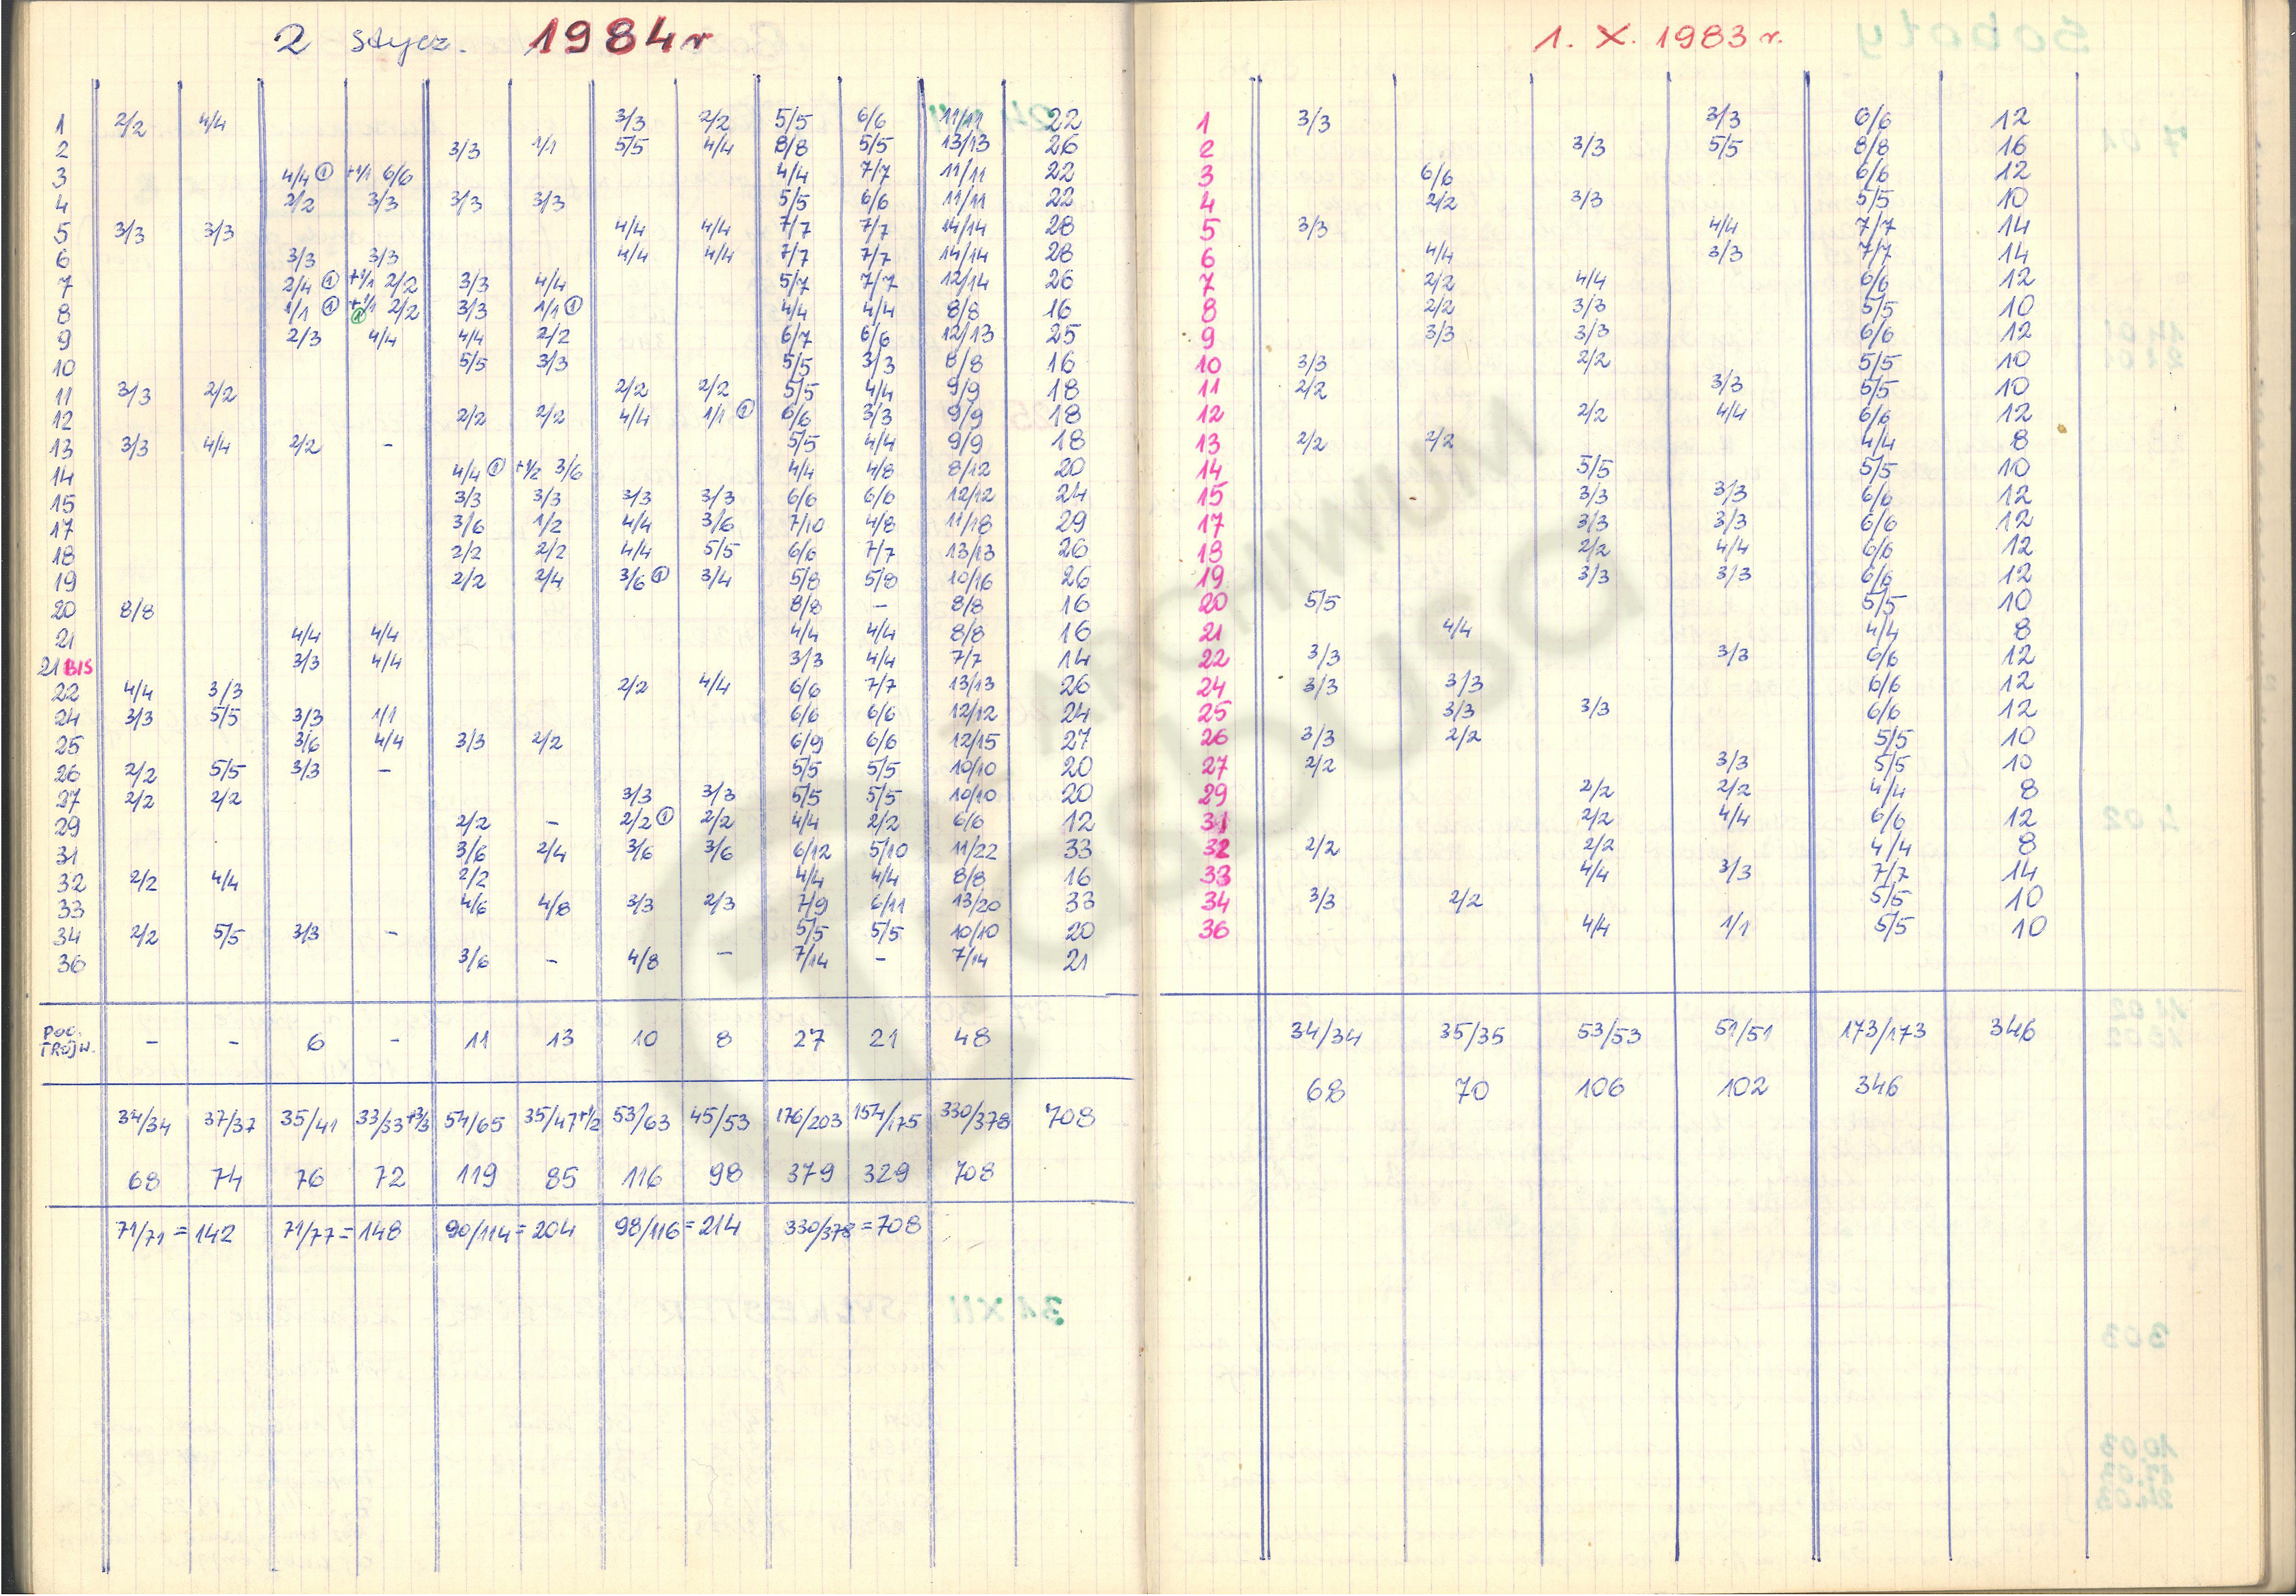 2 stycz. 1984 r
1 2/2 4/4 3/3 2/2 5/5 6/6 11/11 22
2 3/3 1/1 5/5 4/4 8/8 5/5 13/13 26
3 4/4 ① +1/1 6/6 4/4 7/7 11/11 22
4 2/2 3/3 3/3 3/3 5/5 6/6 11/11 22
5 3/3 3/3 4/4 4/4 7/7 7/7 14/14 28
6 3/3 3/3 4/4 4/4 7/7 7/7 14/14 28
7 2/4 ① +1/1 2/2 3/3 4/4 5/7 7/7 12/14 26
8 1/1 ① +1/1 ① 2/2 3/3 1/1 ① 4/4 4/4 8/8 16
9 2/3 4/4 4/4 2/2 6/7 6/6 12/13 25
10 5/5 3/3 5/5 3/3 8/8 16
11 3/3 2/2 2/2 2/2 5/5 4/4 9/9 18
12 2/2 2/2 4/4 1/1 ① 6/6 3/3 9/9 18
13 3/3 4/4 2/2 - 5/5 4/4 9/9 18
14 4/4 ① +1/2 3/6 4/4 4/8 8/12 20
15 3/3 3/3 3/3 3/3 6/6 6/6 12/12 24
17 3/6 1/2 4/4 3/6 7/10 4/8 11/18 29
18 2/2 2/2 4/4 5/5 6/6 7/7 13/13 26
19 2/2 2/4 3/6 ① 3/4 5/8 5/8 10/16 26
20 8/8 8/8 - 8/8 16
21 4/4 4/4 4/4 4/4 8/8 16
21 BIS 3/3 4/4 3/3 4/4 7/7 14
22 4/4 3/3 2/2 4/4 6/6 7/7 13/13 26
24 3/3 5/5 3/3 1/1 6/6 6/6 12/12 24
25 3/6 4/4 3/3 2/2 6/9 6/6 12/15 27
26 2/2 5/5 3/3 - 5/5 5/5 10/10 20
27 2/2 2/2 3/3 3/3 5/5 5/5 10/10 20
29 2/2 - 2/2 ① 2/2 4/4 2/2 6/6 12
31 3/6 2/4 3/6 3/6 6/12 5/10 11/22 33
32 2/2 4/4 2/2 4/4 4/4 8/8 16
33 4/6 4/8 3/3 2/3 7/9 6/11 13/20 33
34 2/2 5/5 3/3 - 5/5 5/5 10/10 20
36 3/6 - 4/8 - 7/14 - 7/14 21
POC. TRÓJW. - - 6 - 11 13 10 8 27 21 48
34/34 37/37 35/41 33/33+3/3 54/65 35/47+1/2 53/63 45/53 176/203 154/175 330/378 708
68 74 76 72 119 85 116 98 379 329 708
71/71 = 142 71/77 = 148 90/114 = 204 98/116 = 214 330/378 = 708
1. X. 1983 r.
1 3/3 3/3 6/6 12
2 3/3 5/5 8/8 16
3 6/6 6/6 12
4 2/2 3/3 5/5 10
5 3/3 4/4 7/7 14
6 4/4 3/3 7/7 14
7 2/2 4/4 6/6 12
8 2/2 3/3 5/5 10
9 3/3 3/3 6/6 12
10 3/3 2/2 5/5 10
11 2/2 3/3 5/5 10
12 2/2 4/4 6/6 12
13 2/2 2/2 4/4 8
14 5/5 5/5 10
15 3/3 3/3 6/6 12
17 3/3 3/3 6/6 12
18 2/2 4/4 6/6 12
19 3/3 3/3 6/6 12
20 5/5 5/5 10
21 4/4 4/4 8
22 3/3 3/3 6/6 12
24 3/3 3/3 6/6 12
25 3/3 3/3 6/6 12
26 3/3 2/2 5/5 10
27 2/2 3/3 5/5 10
29 2/2 2/2 4/4 8
31 2/2 4/4 6/6 12
32 2/2 2/2 4/4 8
33 4/4 3/3 7/7 14
34 3/3 2/2 5/5 10
36 4/4 1/1 5/5 10
34/34 35/35 53/53 51/51 173/173 346
68 70 106 102 346